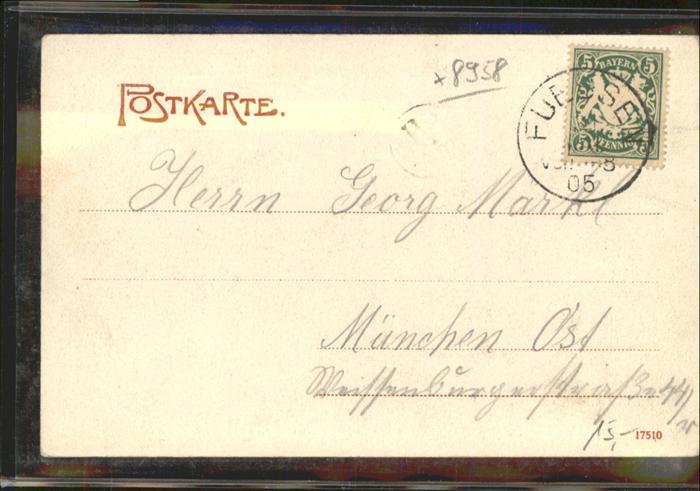 +8958
POSTKARTE.
5 BAYERN 5
5 PFENNIG 5
FUESSEN
05
Herrn Georg Markl
München Ost
Weissenburgerstraße 44/
15,-
17510